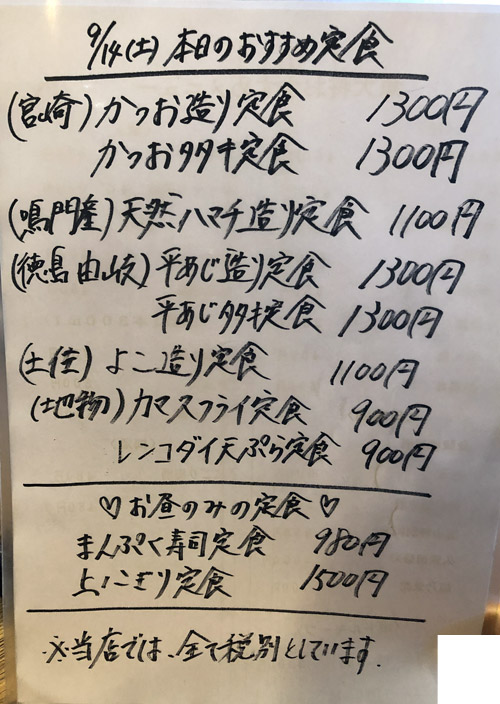 9/14(土) 本日のおすすめ定食
(宮崎) かつお造り定食 1300円
かつおタタキ定食 1300円
(鳴門産) 天然ハマチ造り定食 1100円
(徳島由岐) 平あじ造り定食 1300円
平あじタタキ定食 1300円
(土佐) よこ造り定食 1100円
(地物) カマスフライ定食 900円
レンコダイ天ぷら定食 900円
♡お昼のみの定食♡
まんぷく寿司定食 980円
上にぎり定食 1500円
※当店では、全て税別としています。